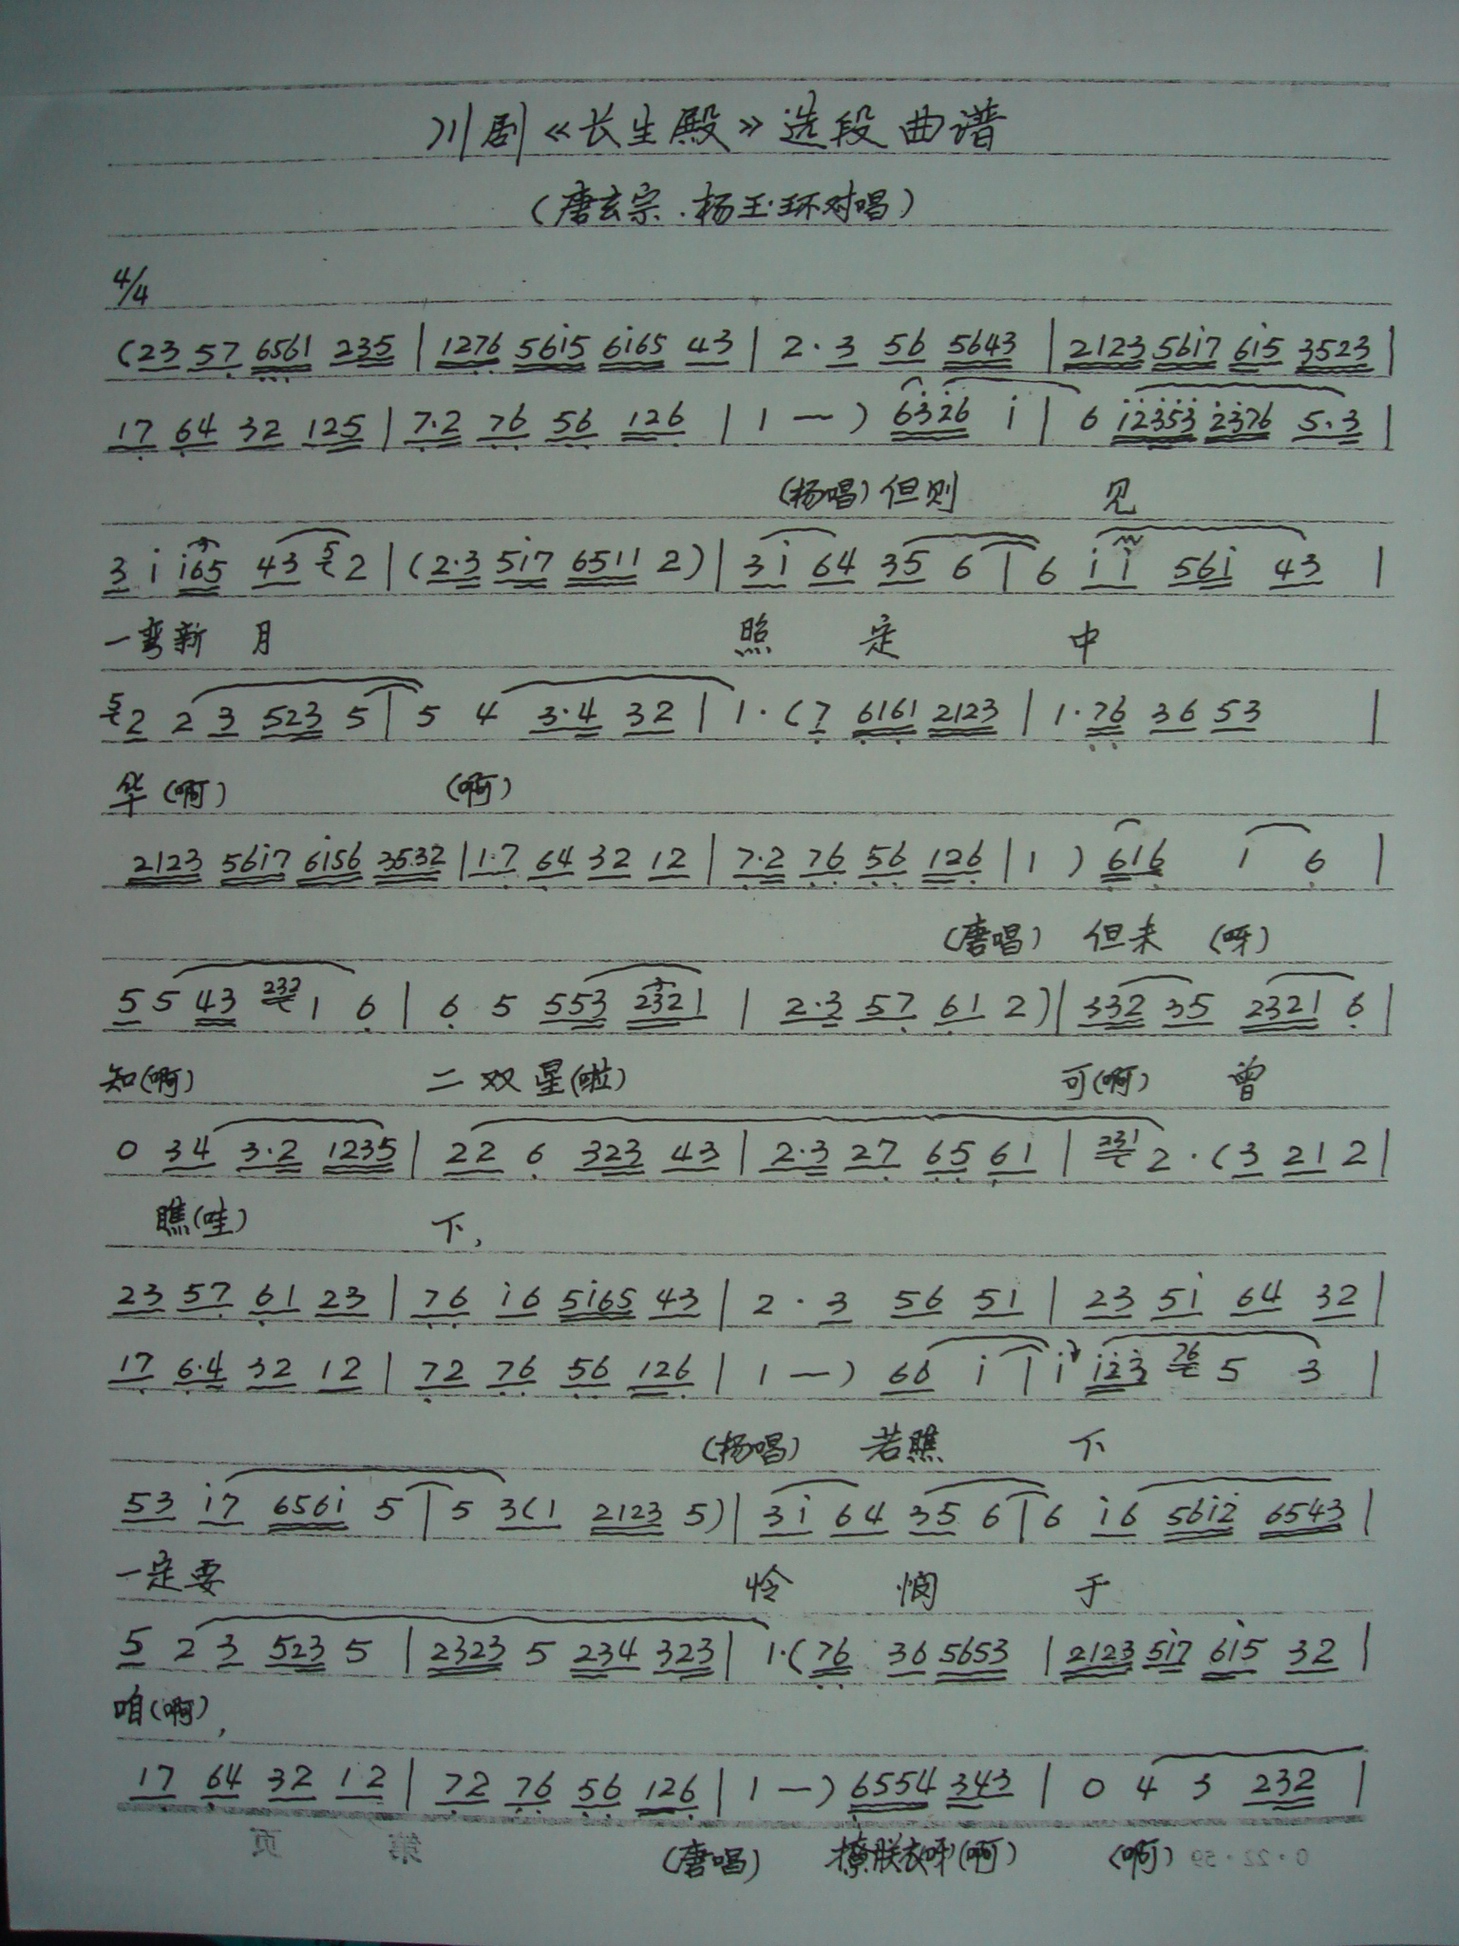 川剧《长生殿》选段曲谱
(唐玄宗.杨玉环对唱)
4/4
(23 57 6561 235 | 1276 56i5 6i65 43 | 2·3 56 5643 | 2123 56i7 6i5 3523 |
17 64 32 125 | 7·2 76 56 126 | 1 —) 6326 i | 6 i2353 2376 5·3 |
(杨唱)但则 见
3 i i65 43 5 2 | (2·3 5i7 6511 2) | 3i 64 35 6 | 6 i i 56i 43 |
一弯新 月 照 定 中
5 2 2 3 523 5 | 5 4 3·4 32 | 1·(7 6161 2123 | 1·76 36 53 |
华(啊) (啊)
2123 56i7 6i56 3532 | 1·7 64 32 12 | 7·2 76 56 126 | 1 ) 616 1 6 |
(唐唱) 但未 (呀)
5 5 43 232 1 6 | 6 5 553 2321 | 2·3 57 61 2) | 332 35 2321 6 |
知(啊) 二双星(啦) 可(啊) 曾
0 34 3·2 1235 | 22 6 323 43 | 2·3 27 65 61 | 231 2·(3 21 2 |
瞧(哇) 下,
23 57 61 23 | 76 i6 5i65 43 | 2·3 56 5i | 23 5i 64 32 |
17 6·4 32 12 | 72 76 56 126 | 1 —) 66 i | i i23 76 5 3 |
(杨唱) 若瞧 下
53 i7 656i 5 | 5 3(1 2123 5) | 3i 64 35 6 | 6 i6 56i2 6543 |
一定要 怜 悯 于
5 2 3 523 5 | 2323 5 234 323 | 1·(76 36 5653 | 2123 5i7 6i5 32 |
咱(啊),
17 64 32 12 | 72 76 56 126 | 1 —) 6554 343 | 0 4 3 232 |
(唐唱) 撩朕衣呀(啊) (啊)
第 页